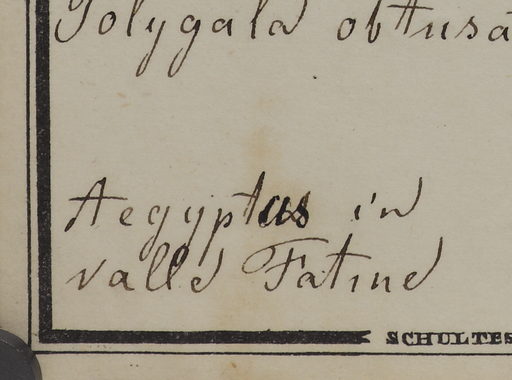 Polygala obtusa
Aegyptus in
valle Fatme
SCHULTES